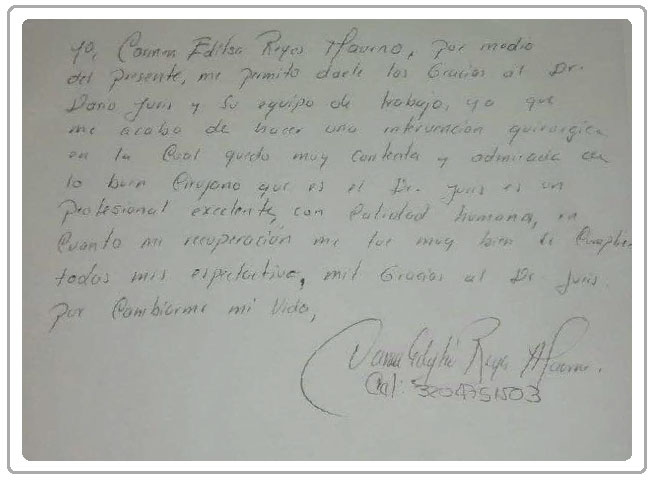 Yo, Carmen Editsa Reyes Maurno, por medio
del presente, me permito darle las Gracias al Dr.
Dario Juris y su equipo de trabajo, ya que
me acabo de hacer una intervencion quirorgica
en la Cual quedo muy contenta y admirada con
lo buen Cirujano que es el Dr. Juris es un
profesional excelente, con Calidad humana, en
Cuanto mi recuperación me fue muy bien se Cumplier
todas mis espectactiva, mil Gracias al Dr. Juris.
por Cambiarme mi Vida,
Reyes
Cel: 3204751503